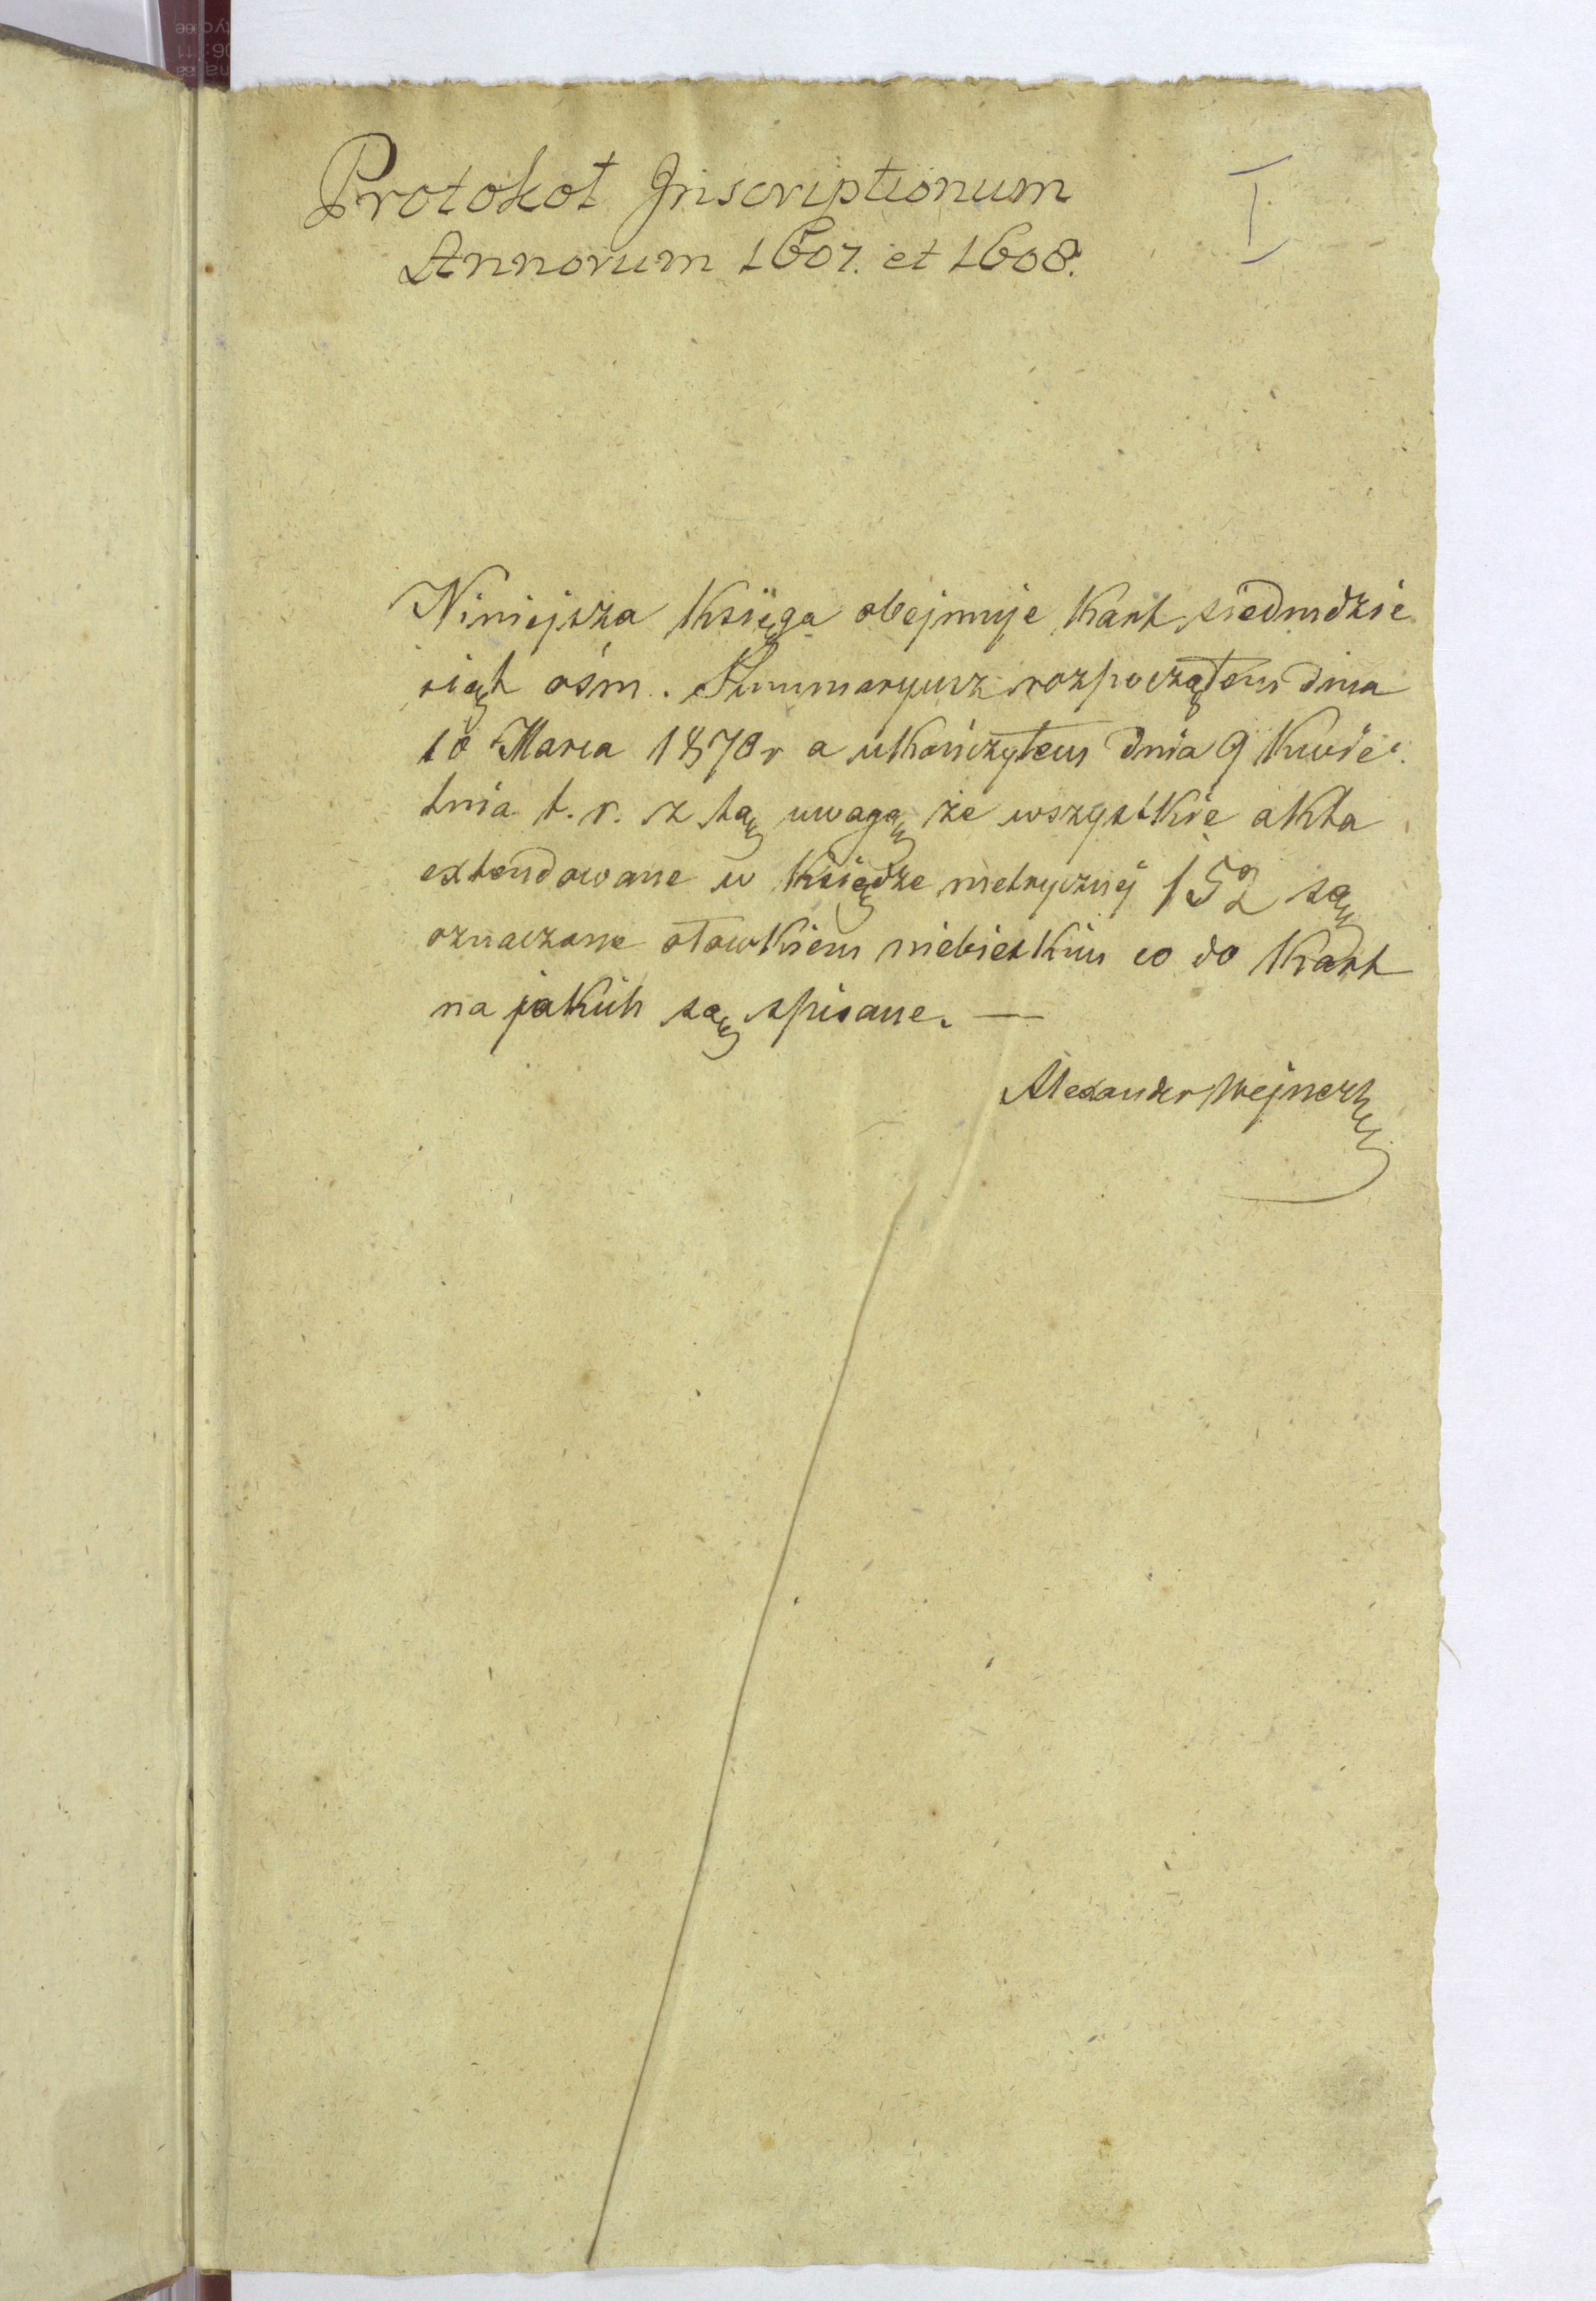 Protokoł Inscriptionum
I
Annorum 1607. et 1608.
Niniejsza Księga obejmuje Kart siedmdzie
siąt ośm. Summaryusz rozpocząłem dnia
10 Marca 1870 r a ukończyłem dnia 9 Kwie-
tnia t. r. z tą uwagą że wszystkie akta
extendowane w Księdze metrycznej 152 są
oznaczone ołowkiem niebieskim co do Kart
na jakich są spisane. —
Alexander Wejnert